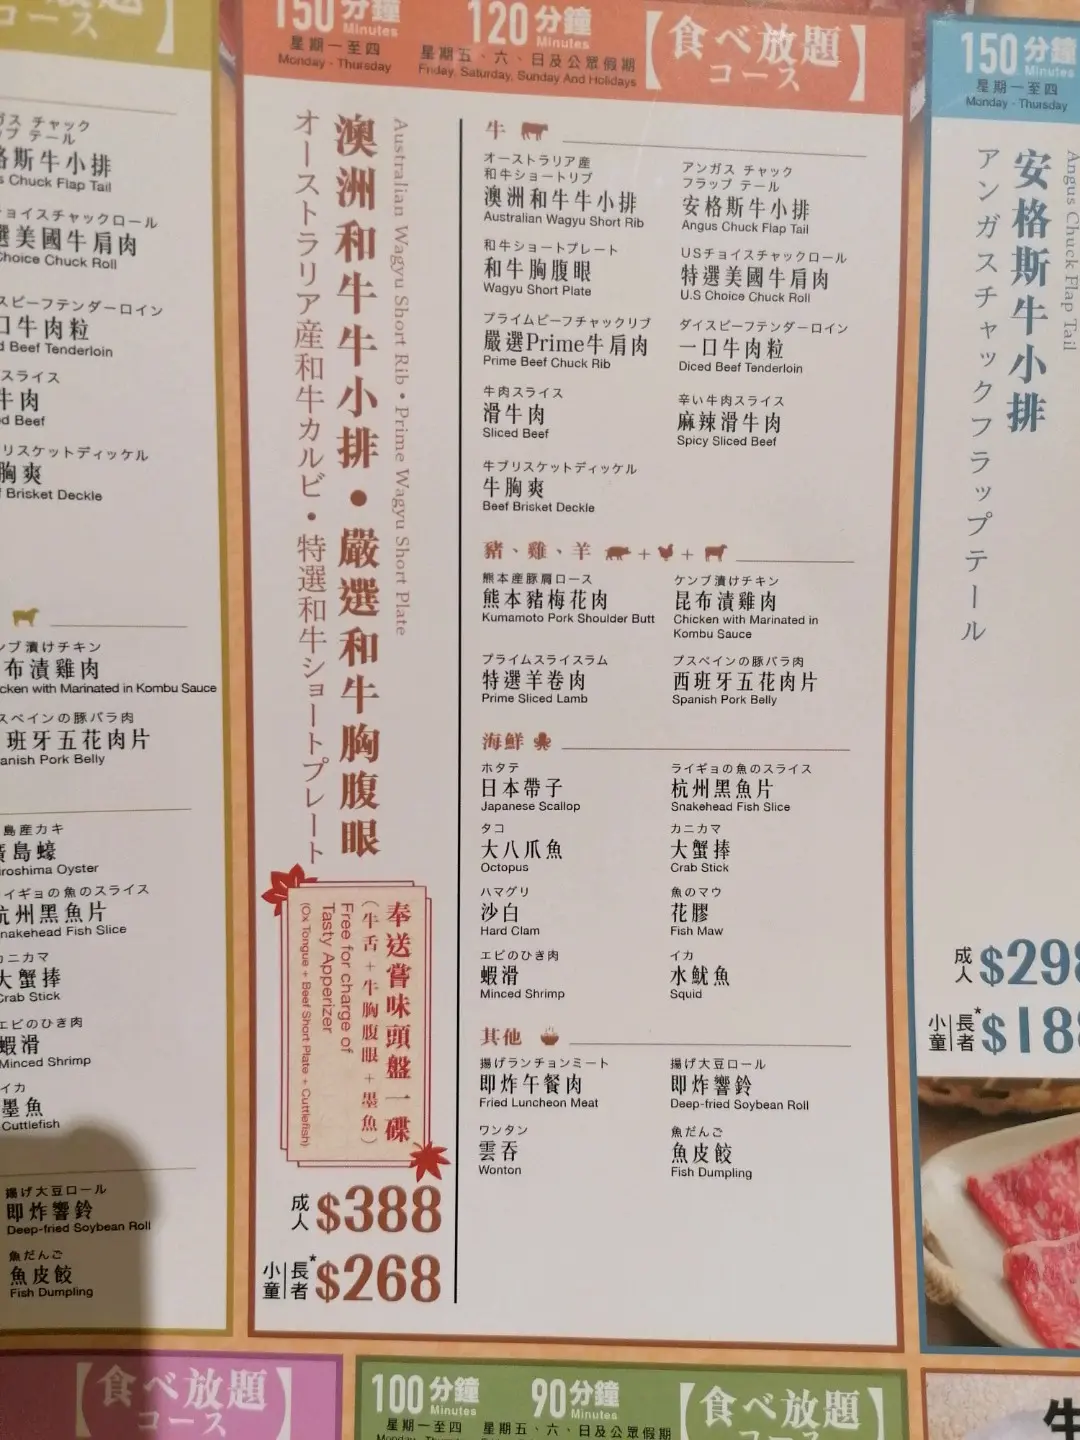 コース
ガス チャック
格斯牛小排
Chuck Flap Tail
ョイスチャックロール
選美國牛肩肉
Choice Chuck Roll
スビーフテンダーロイン
口牛肉粒
Beef Tenderloin
スライス
牛肉
Beef
リスケットディッケル
胸爽
Brisket Deckle
ンブ漬けチキン
布漬雞肉
cken with Marinated in Kombu Sauce
スペインの豚バラ肉
班牙五花肉片
anish Pork Belly
島産カキ
廣島蠔
iroshima Oyster
イギョの魚のスライス
杭州黑魚片
nakehead Fish Slice
カニカマ
大蟹捧
Crab Stick
エビのひき肉
蝦滑
Minced Shrimp
イカ
墨魚
Cuttlefish
揚げ大豆ロール
即炸響鈴
Deep-fried Soybean Roll
魚だんご
魚皮餃
Fish Dumpling
150分鐘
Minutes
星期一至四
Monday - Thursday
120分鐘
Minutes
星期五、六、日及公眾假期
Friday, Saturday, Sunday And Holidays
【食べ放題
コース】
Australian Wagyu Short Rib • Prime Wagyu Short Plate
澳洲和牛牛小排•嚴選和牛胸腹眼
オーストラリア産和牛カルビ・特選和牛ショートプレート
奉送嘗味頭盤一碟
（牛舌+牛胸腹眼+墨魚）
Free for charge of
Tasty Apperizer
(Ox Tongue + Beef Short Plate + Cuttlefish)
成人 $388
小童|長者* $268
牛
オーストラリア産
和牛ショートリブ
澳洲和牛牛小排
Australian Wagyu Short Rib
アンガス チャック
フラップ テール
安格斯牛小排
Angus Chuck Flap Tail
和牛ショートプレート
和牛胸腹眼
Wagyu Short Plate
USチョイスチャックロール
特選美國牛肩肉
U.S Choice Chuck Roll
プライムビーフチャックリブ
嚴選Prime牛肩肉
Prime Beef Chuck Rib
ダイスビーフテンダーロイン
一口牛肉粒
Diced Beef Tenderloin
牛肉スライス
滑牛肉
Sliced Beef
辛い牛肉スライス
麻辣滑牛肉
Spicy Sliced Beef
牛ブリスケットディッケル
牛胸爽
Beef Brisket Deckle
豬、雞、羊 + +
熊本産豚肩ロース
熊本豬梅花肉
Kumamoto Pork Shoulder Butt
ケンブ漬けチキン
昆布漬雞肉
Chicken with Marinated in
Kombu Sauce
プライムスライスラム
特選羊卷肉
Prime Sliced Lamb
プスペインの豚バラ肉
西班牙五花肉片
Spanish Pork Belly
海鮮
ホタテ
日本帶子
Japanese Scallop
ライギョの魚のスライス
杭州黑魚片
Snakehead Fish Slice
タコ
大八爪魚
Octopus
カニカマ
大蟹捧
Crab Stick
ハマグリ
沙白
Hard Clam
魚のマウ
花膠
Fish Maw
エビのひき肉
蝦滑
Minced Shrimp
イカ
水魷魚
Squid
其他
揚げランチョンミート
即炸午餐肉
Fried Luncheon Meat
揚げ大豆ロール
即炸響鈴
Deep-fried Soybean Roll
ワンタン
雲吞
Wonton
魚だんご
魚皮餃
Fish Dumpling
150分鐘
Minutes
星期一至四
Monday - Thursday
Angus Chuck Flap Tail
安格斯牛小排
アンガスチャックフラップテール
成人 $298
小童|長者* $188
【食べ放題
コース】
100分鐘
Minutes
星期一至四
90分鐘
Minutes
星期五、六、日及公眾假期
【食べ放題
コース】